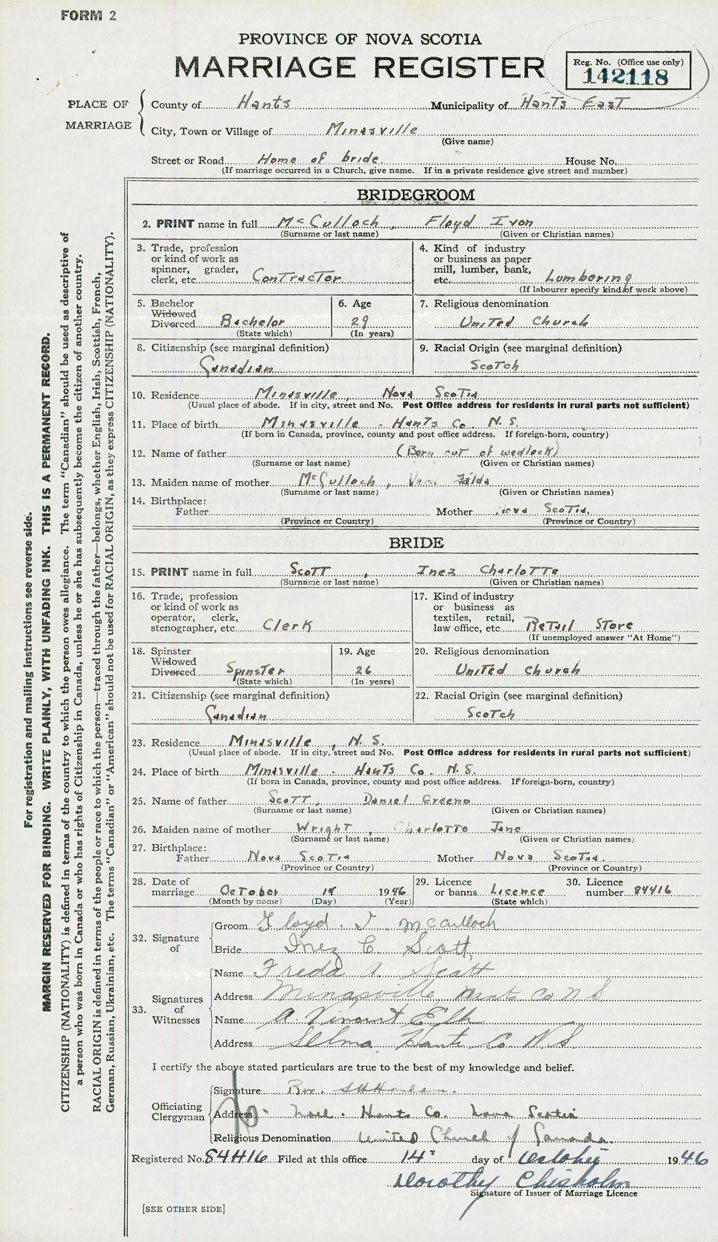 FORM 2
PROVINCE OF NOVA SCOTIA
MARRIAGE REGISTER
Reg. No. (Office use only)
142118
PLACE OF MARRIAGE
County of Hants Municipality of Hants East
City, Town or Village of Minasville
(Give name)
Street or Road Home of bride. House No.
(If marriage occurred in a Church, give name. If in a private residence give street and number)
BRIDEGROOM
2. PRINT name in full McCulloch, Floyd Ivon
(Surname or last name) (Given or Christian names)
3. Trade, profession or kind of work as spinner, grader, clerk, etc. Contractor
4. Kind of industry or business as paper mill, lumber, bank, etc. Lumbering
(If labourer specify kind of work above)
5. Bachelor Widowed Divorced Bachelor
(State which)
6. Age 29
(In years)
7. Religious denomination
United Church
8. Citizenship (see marginal definition)
Canadian
9. Racial Origin (see marginal definition)
Scotch
10. Residence Minasville, Nova Scotia
(Usual place of abode. If in city, street and No. Post Office address for residents in rural parts not sufficient)
11. Place of birth Minasville - Hants Co. N.S.
(If born in Canada, province, county and post office address. If foreign-born, country)
12. Name of father (Born out of wedlock)
(Surname or last name) (Given or Christian names)
13. Maiden name of mother McCulloch,
(Surname or last name) (Given or Christian names)
14. Birthplace:
Father Mother Nova Scotia.
(Province or Country) (Province or Country)
BRIDE
15. PRINT name in full Scott, Inez Charlotte
(Surname or last name) (Given or Christian names)
16. Trade, profession or kind of work as operator, clerk, stenographer, etc. Clerk
17. Kind of industry or business as textiles, retail, law office, etc. Retail Store
(If unemployed answer "At Home")
18. Spinster Widowed Divorced Spinster
(State which)
19. Age 26
(In years)
20. Religious denomination
United Church
21. Citizenship (see marginal definition)
Canadian
22. Racial Origin (see marginal definition)
Scotch
23. Residence Minasville, N.S.
(Usual place of abode. If in city, street and No. Post Office address for residents in rural parts not sufficient)
24. Place of birth Minasville - Hants Co. N.S.
(If born in Canada, province, county and post office address. If foreign-born, country)
25. Name of father Scott, Daniel Greeno
(Surname or last name) (Given or Christian names)
26. Maiden name of mother Wright, Charlotte Jane
(Surname or last name) (Given or Christian names)
27. Birthplace:
Father Nova Scotia Mother Nova Scotia.
(Province or Country) (Province or Country)
28. Date of marriage October 14 1946
(Month by name) (Day) (Year)
29. Licence or banns Licence
(State which)
30. Licence number 84416
32. Signature of
Groom Floyd I McCulloch
Bride Inez C Scott
33. Signatures of Witnesses
Name Freda A Scott
Address Minasville Hants Co N S
Name A. Vincent
Address Selma, Hants Co. N.S
I certify the above stated particulars are true to the best of my knowledge and belief.
Officiating Clergyman
Signature Rev.
Address Noel. Hants Co. Nova Scotia
Religious Denomination United Church of Canada.
Registered No. 84416 Filed at this office 14th day of October 1946
Dorothy Chisholm
Signature of Issuer of Marriage Licence
[SEE OTHER SIDE]
For registration and mailing instructions see reverse side.
MARGIN RESERVED FOR BINDING. WRITE PLAINLY, WITH UNFADING INK. THIS IS A PERMANENT RECORD.
CITIZENSHIP (NATIONALITY) is defined in terms of the country to which the person owes allegiance. The term "Canadian" should be used as descriptive of
a person who was born in Canada or who has rights of Citizenship in Canada, unless he or she has subsequently become the citizen of another country.
RACIAL ORIGIN is defined in terms of the people or race to which the person—traced through the father—belongs, whether English, Irish, Scottish, French,
German, Russian, Ukrainian, etc. The terms "Canadian" or "American" should not be used for RACIAL ORIGIN, as they express CITIZENSHIP (NATIONALITY).